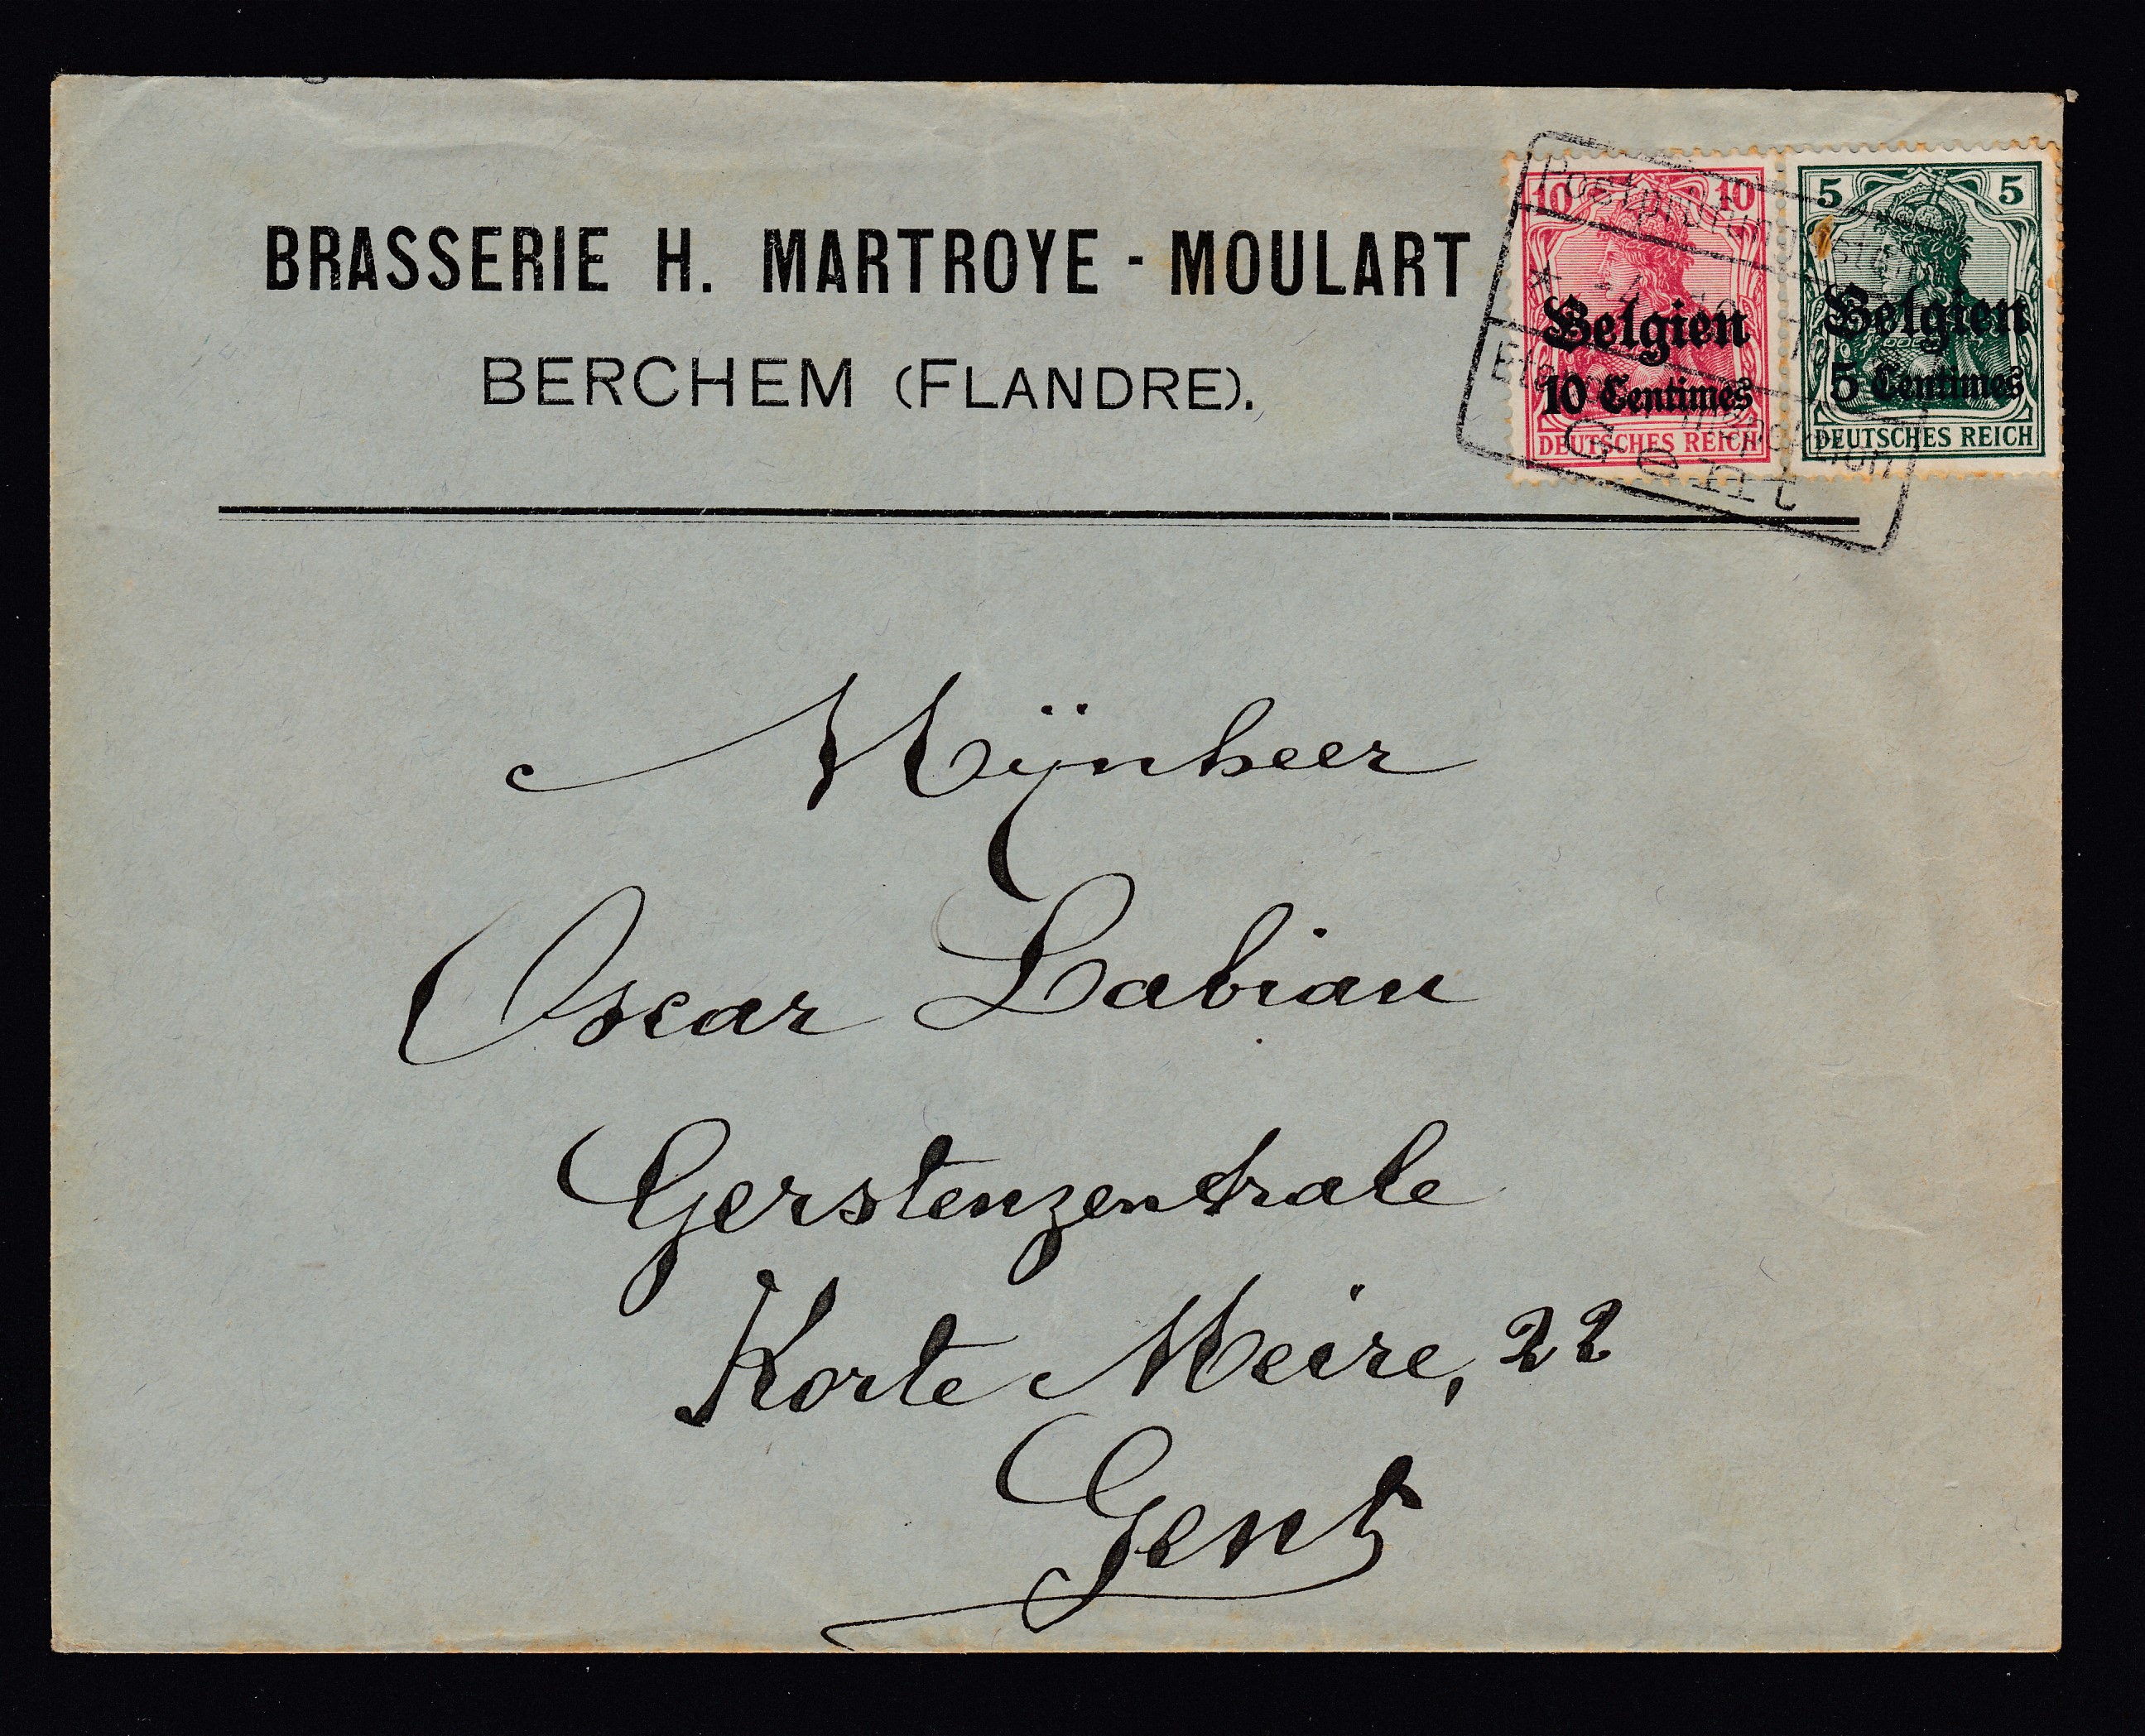 BRASSERIE H. MARTROYE - MOULART
BERCHEM (FLANDRE).
10 10
Belgien
10 Centimes
DEUTSCHES REICH
5 5
Belgien
5 Centimes
DEUTSCHES REICH
Gent
Mÿnheer
Oscar Labiau
Gerstenzentrale
Korte Meire, 22
Gent